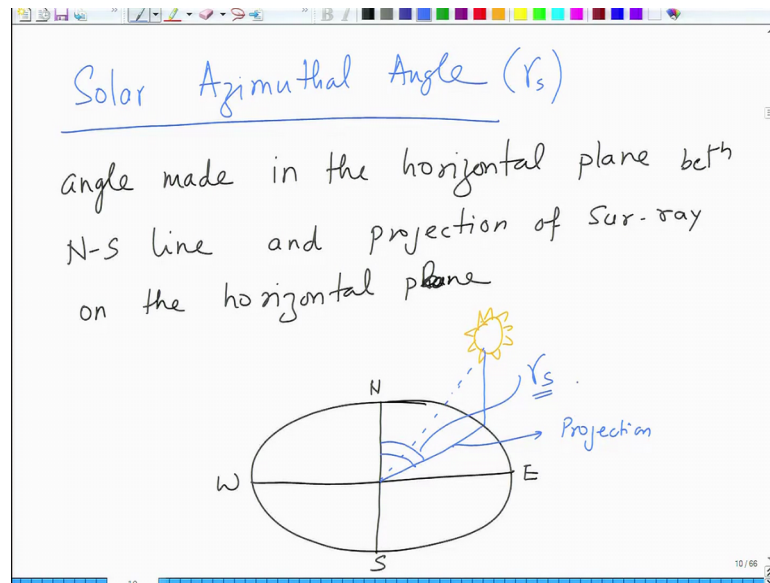 Solar Azimuthal Angle (γs)
angle made in the horizontal plane beth
N-S line and projection of Sur-ray
on the horizontal plane
N
γs
Projection
W
E
S
10 / 66